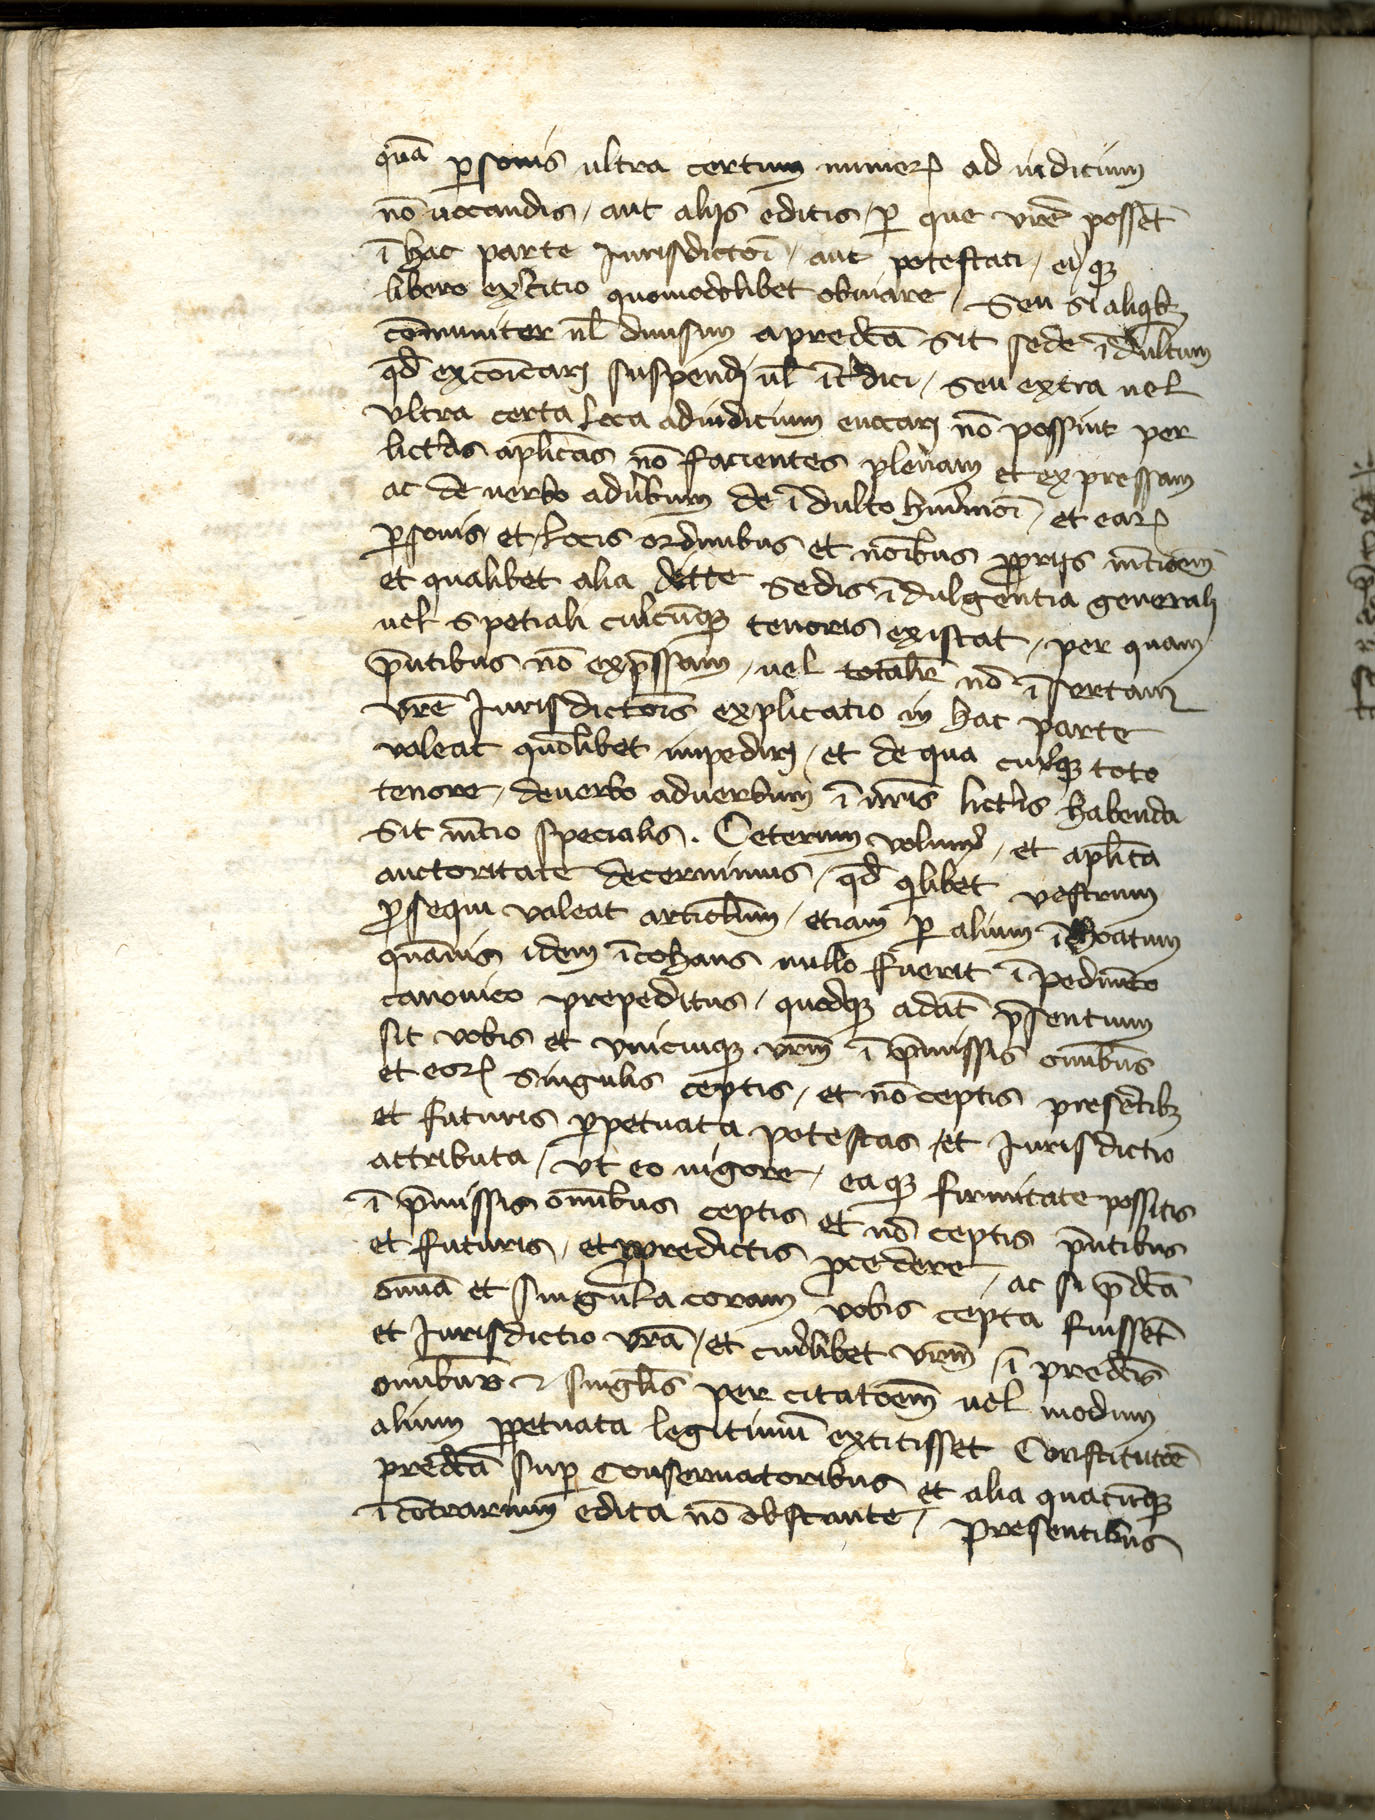 quā ꝑsonis ultra certum numeꝝ ad iudicium
nō uocandis / aut alijs editis / ꝑ que vrē possēt
ī hac parte Iurisdictōī / aut potestati / eiꝙ
libero exercitio quomodolibet obuiare / Seu Si aliqbꝫ
cōmuniter ul̄ diuisim apredc̄a Sit sede īdultum
qd̄ excōīcarj suspendj ul̄ īterdici / Seu extra uel
vltra certa loca adiudicium euocarj nō possint per
lict̄as aplīcas nō facientes plenam et expressam
ac de uerbo aduerbum de īdulto huiꝰmōī / et eaꝝ
ꝑsonis et locis ordinibus et noībus ꝓprijs mc̄ioēm
et qualibet alia dicte Sedis īdulgentia generalj
uel Spetiali cuiꝰcūqꝫ tenoris existat / per quam
pn̄tibus nō exp̄ssam / uel totalit̄ nō īsertam
vrē̄ Iurisdictōis explicatio in hac parte
valeat quōlibet impedirj / et de qua cuiꝰqꝫ toto
tenore / deuerbo aduerbum ī nr̄is lict̄is habenda
Sit mc̄io specialis. Ceterum volumꝰ / et aplīca
auctoritate decernimus / qd̄ qlibet vestrum
ꝓsequi valeat articulum / etiam ꝑ alium īchoatum
quāuis idem īcohans nullo fuerit īpedimēto
canonico prepeditus / quodqꝫ adat̄ p̄sentium
sit vobis et vnicuiqꝫ vrm̄ ī p̄missis omībus
et eoꝝ Singulis ceptis / et nō ceptis presētibꝫ
et futuris ꝑpetuata potestas / et Iurisdictio
attributa / vt eo uigore / eaqꝫ firmitate possitis
ī p̄missis omībus ceptis et nō ceptis pn̄tibus
et futuris / et ꝓpredictis ꝓcedere / ac si p̄dc̄a
omīa et singula coram vobis cepta fuissēt
et Iurisdictio vrā / et cuiꝰlibet vrm̄ / ī predc̄is
omībus ⁊ singlīs per citatōem uel modum
alium ꝑpetuata legitimū extitisset Constitutōē
predc̄a suꝑ Conseruatoribus et alia quacūqꝫ
ī cōtrarium edita nō obstante / presentibus